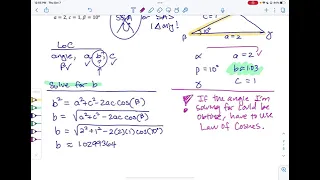 a = 2, c = 1, β = 10°
SSA or SAS
1 Δ only!
C = 1
β 10° a = 2 γ
LoC
angle, a b c
β ?
α a = 2
β = 10° b = 1.03
γ C = 1
Solve for b
b² = a² + c² - 2ac cos(β)
b = √a² + c² - 2ac cos(β)
b = √2² + 1² - 2(2)(1) cos(10°)
b ≈ 1.0299364
* If the angle I'm
solving for could be
obtuse, have to use
Law of Cosines.